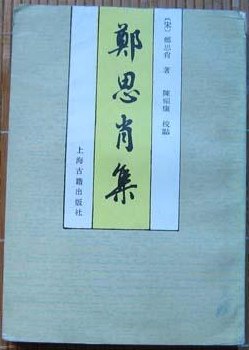 [宋] 鄭思肖 著
陳福康 校點
鄭思肖集
上海古籍出版社